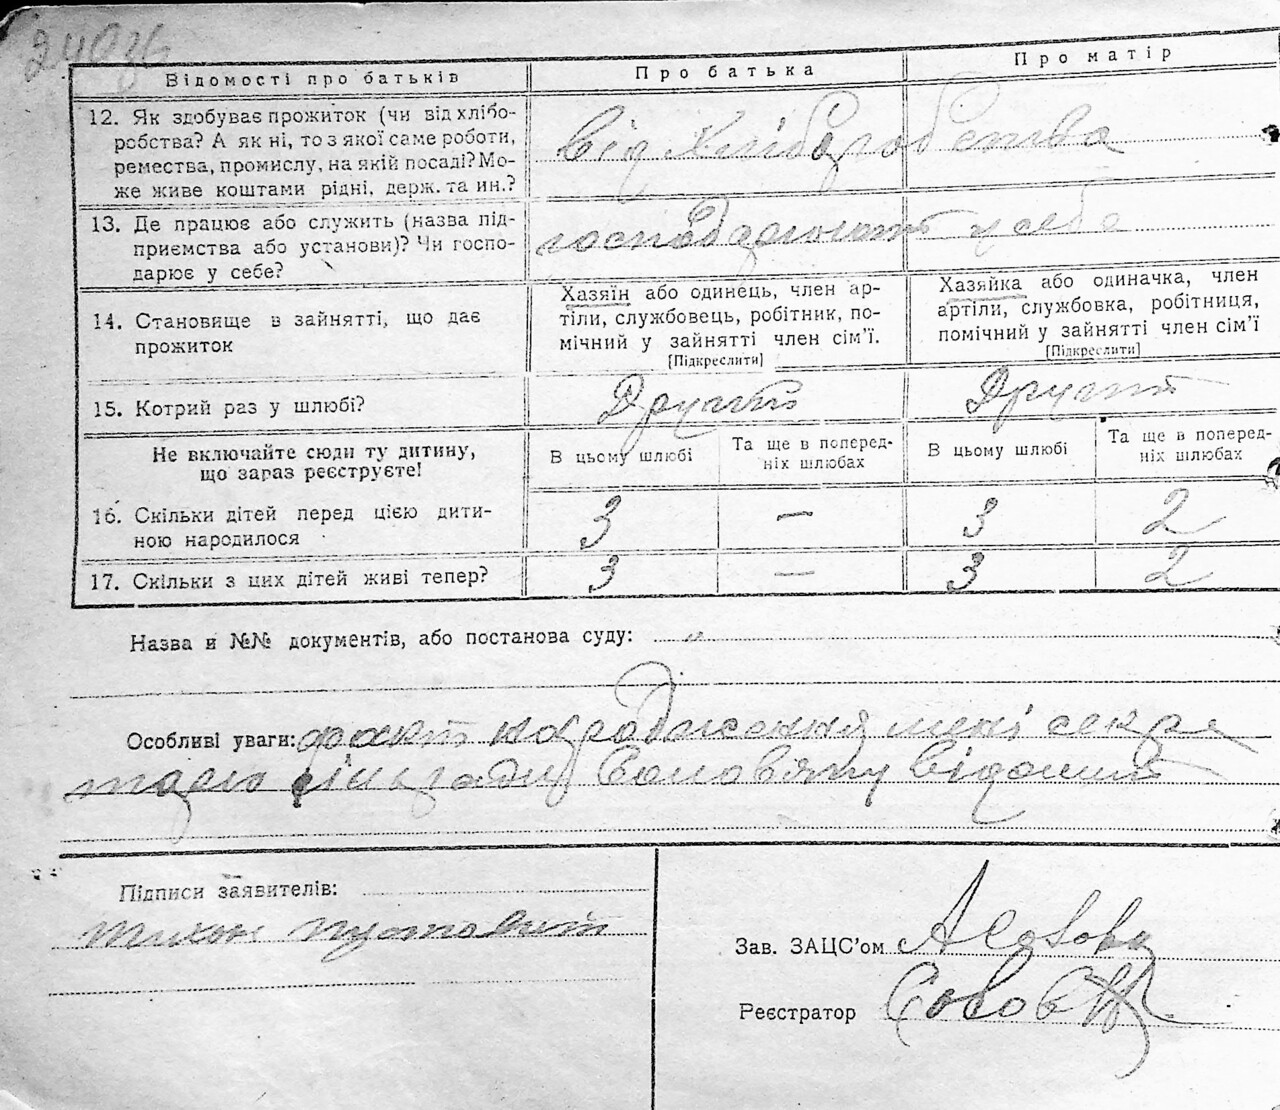 Відомості про батьків Про батька Про матір
12. Як здобуває прожиток (чи від хлібо-
робства? А як ні, то з якої саме роботи,
ремества, промислу, на якій посаді? Мо-
же живе коштами рідні, держ. та ин.?
від хліборобства
13. Де працює або служить (назва під-
приємства або установи)? Чи госпо-
дарює у себе?
господарюють у себе
14. Становище в зайнятті, що дає
прожиток
Хазяїн або одинець, член ар-
тілі, службовець, робітник, по-
мічний у зайнятті член сім'ї.
[Підкреслити]
Хазяйка або одиначка, член
артіли, службовка, робітниця,
помічний у зайнятті член сім'ї
[Підкреслити]
15. Котрий раз у шлюбі? Другий Другий
Не включайте сюди ту дитину,
що зараз реєструєте!
В цьому шлюбі Та ще в поперед-
ніх шлюбах
В цьому шлюбі Та ще в поперед-
ніх шлюбах
16. Скільки дітей перед цією дити-
ною народилося
3 — 3 2
17. Скільки з цих дітей живі тепер? 3 — 3 2
Назва й №№ документів, або постанова суду: "
Особливі уваги: факт народження мені секре
тарю сільради відомий
Підписи заявителів:
Тихон Пустовит
Зав. ЗАЦС'ом
Реєстратор